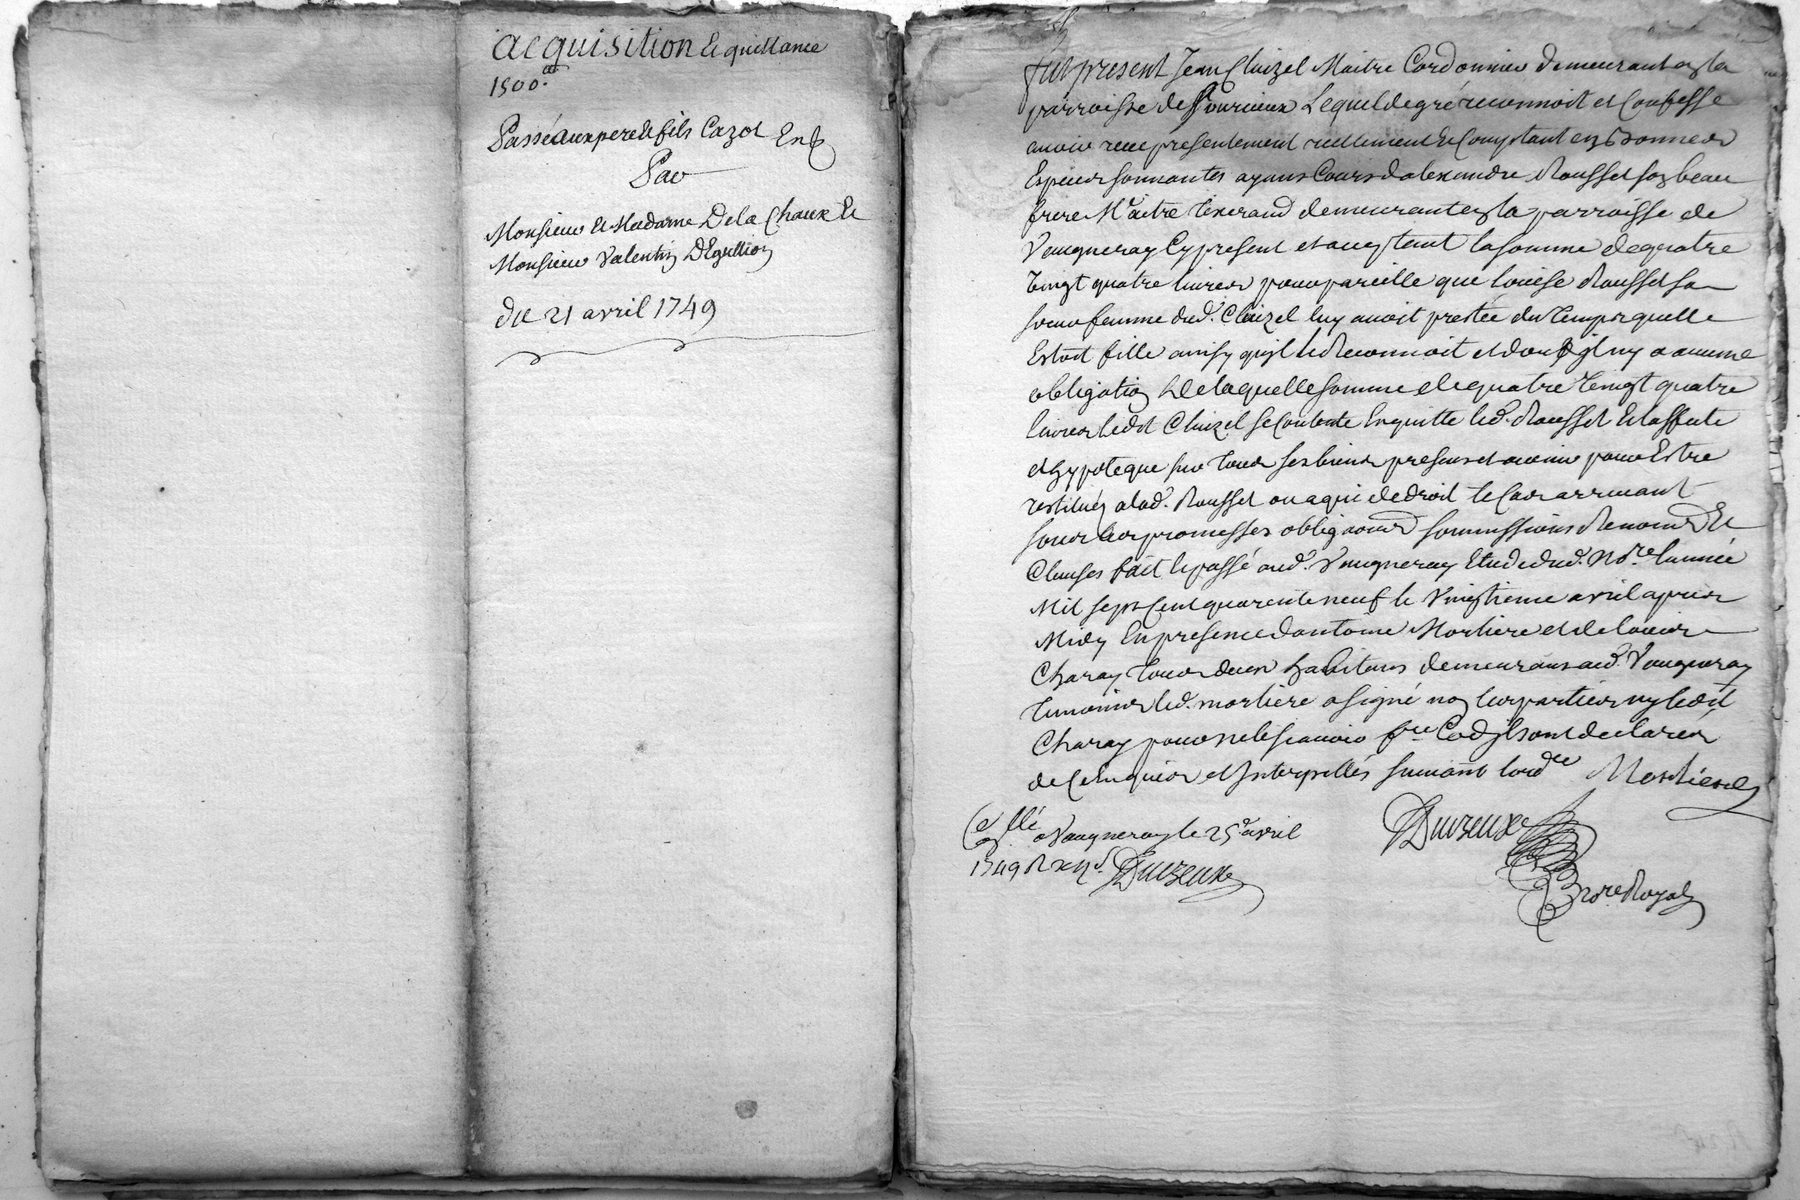 acquisition Et quittance
1500.tt
Passé aux pere Et fils Cazot
Par
Monsieur Et Madame De la Chaux Et
Monsieur Valentin D'Eguillion
du 21 avril 1749
fut present Jean Cluzel Maitre Cordonnier demeurant en la
parroisse de Pourcieux Lequel de gré reconnoit et Confesse
avoir receu presentement reellement et Comptant en bonnes
Especes sonnantes ayans Cours d'alexandre Rousset son beau
frere Maitre tixerand demeurant en la parroisse de
Vaugneray Cy present et acceptant la somme de quatre
Vingt quatre livres pour pareille que Louise Rousset sa
soeur femme dud. Cluzel luy avoit prestée du temps quelle
Estoit fille ainsy qu'il le Reconnoit et dont il n'y a aucune
obligation De laquelle somme de quatre Vingt quatre
livres ledit Cluzel se Contente En quitte led. Rousset Et affecte
et hypoteque sur tous ses biens presens et avenir pour Estre
restituéz alad. Rousset ou a qui de droit le Cas arrivant
sous les promesses obligaons soumissions Renonons Et
Clauses fait Et passé aud. Vaugneray Etude dud. Nore. l'année
Mil sept Cent quarente neuf le Vingtieme avril apres
Midy En presence d'antoine Morliere et de Louis
Charay tous deux habitans demeurans aud. Vaugneray
temoins led. morliere a signé non les parties ny ledit
Charay pour ne le scavoir fre. Cad. ils ont declarés
de Ce Enquis et Interpellés suivant lordce Morliere
Cellé a Vaugneray le 25e avril
1749 R xii s. Duvzeuxe
Duvzeuxe
nore. Royal